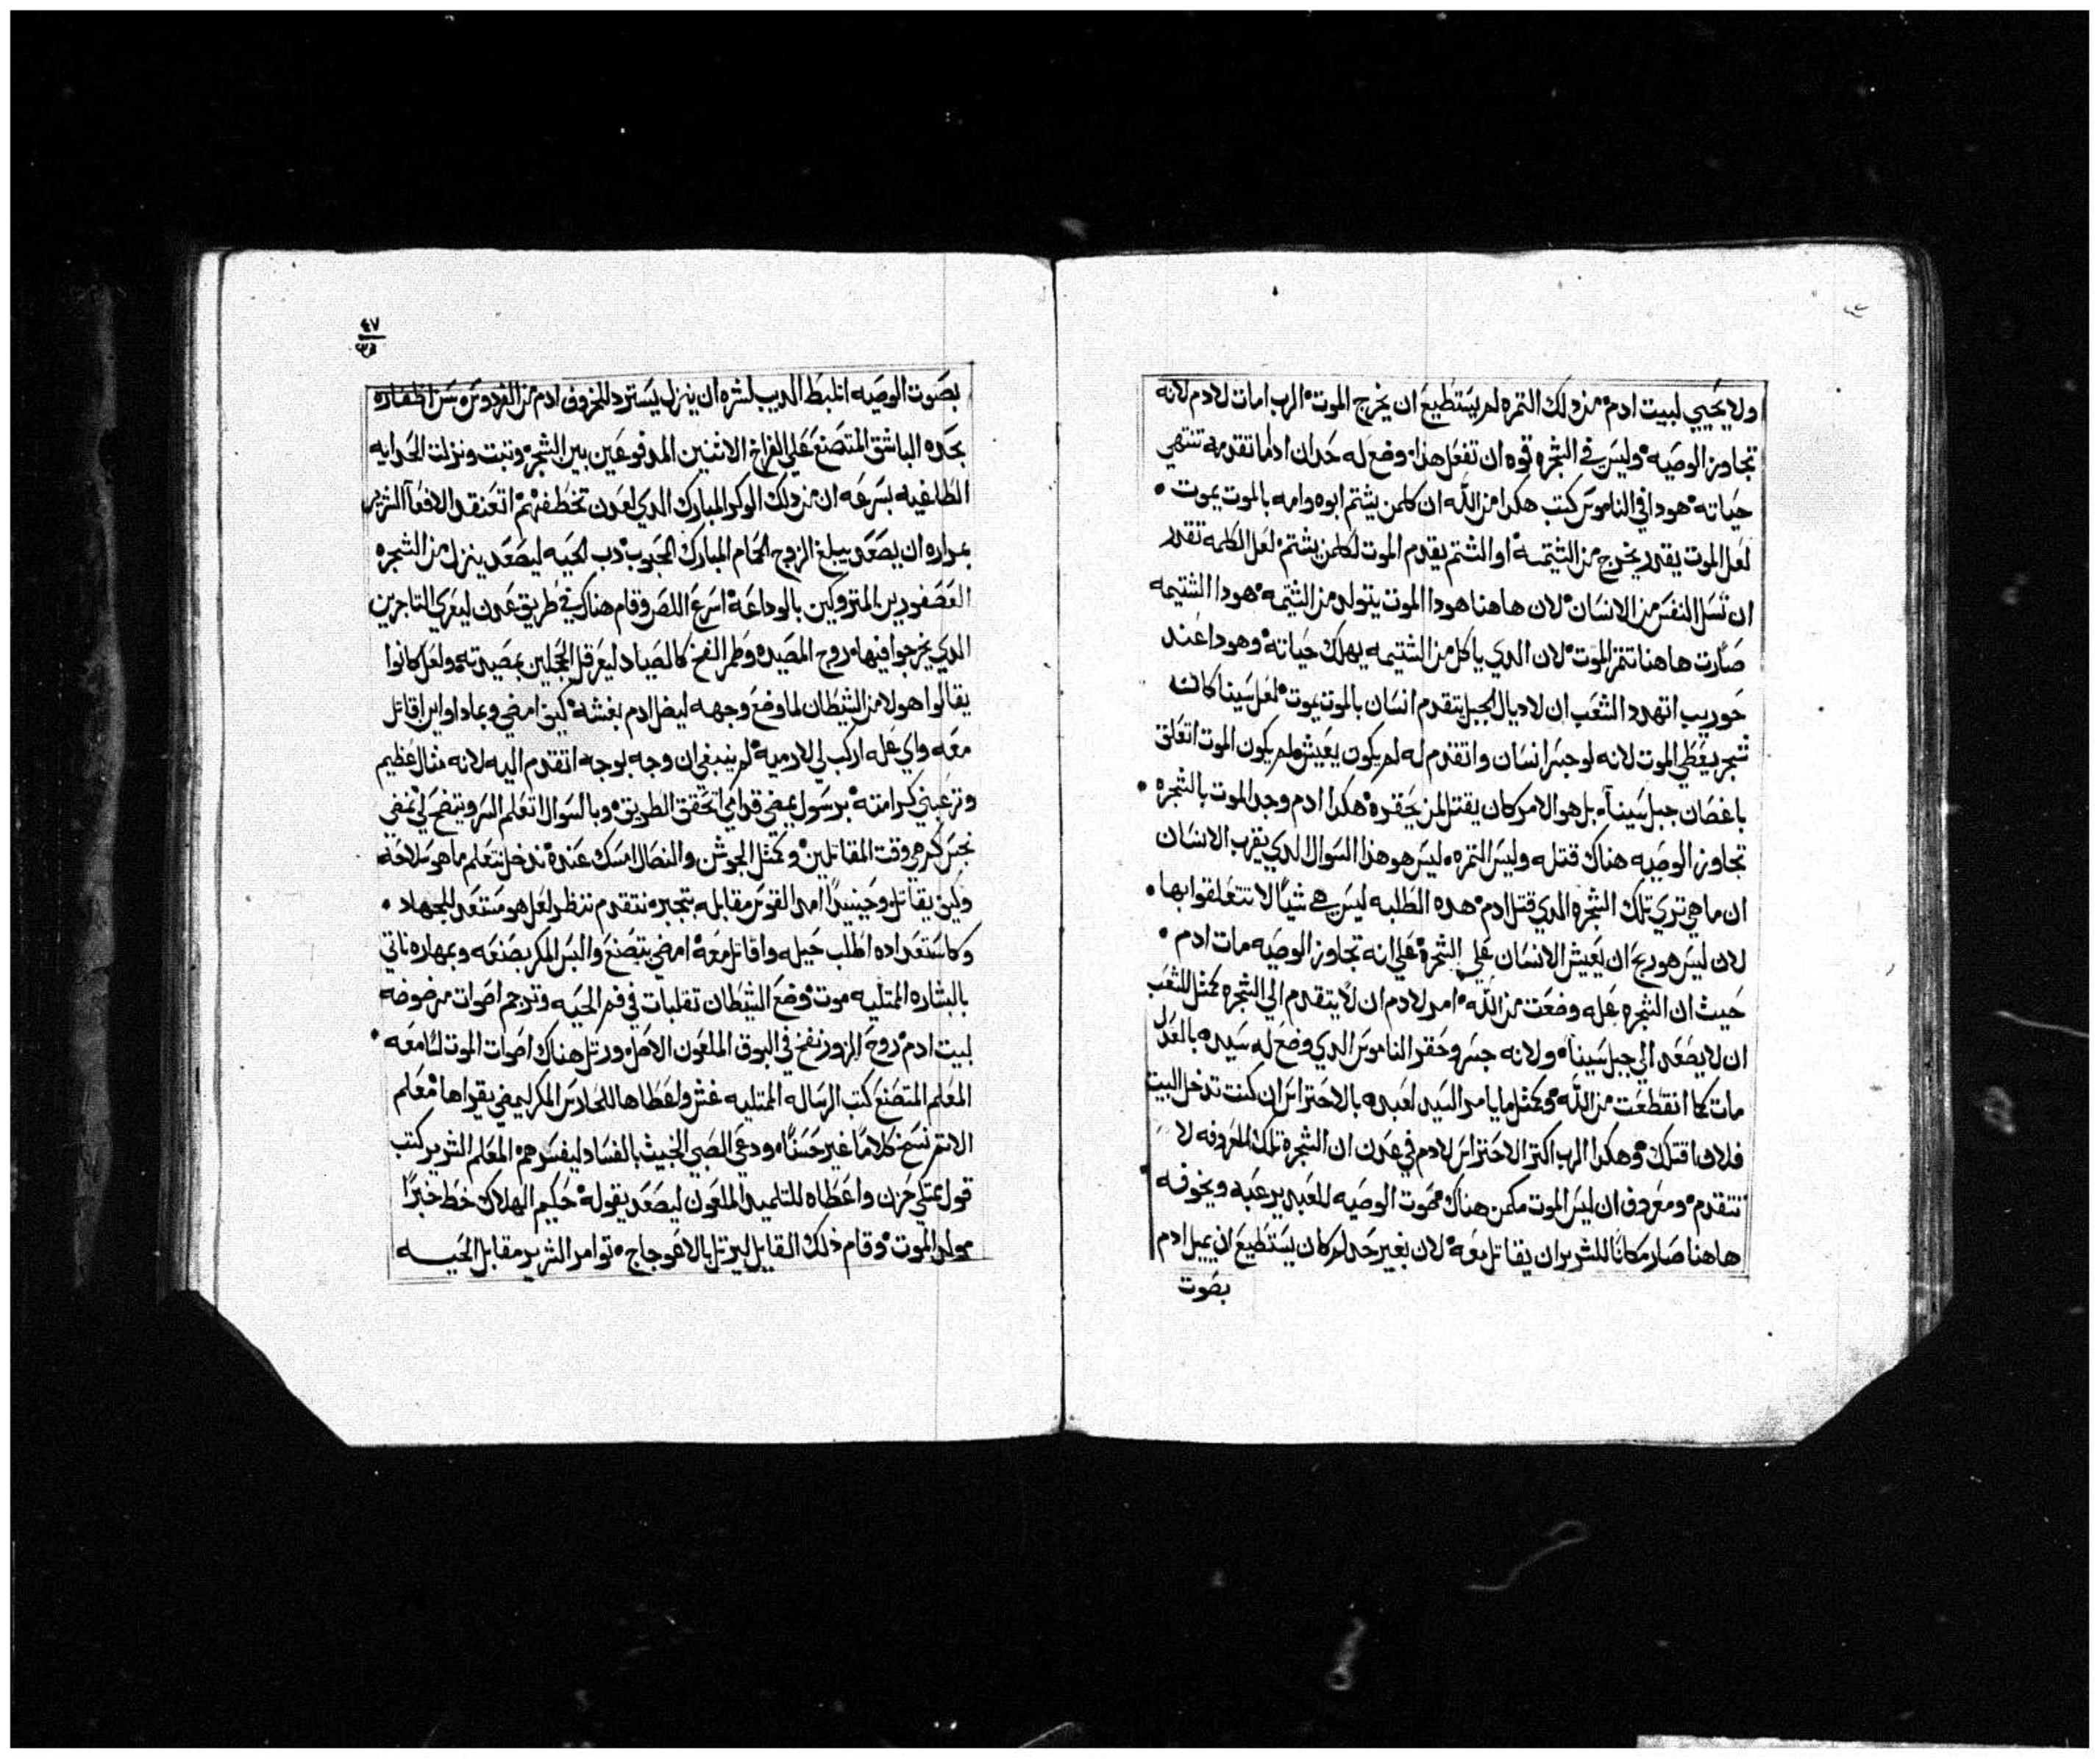 ولا يحيي لبيت ادم من دلك التمره لم يستطيع ان يخرج الموت الرب امات لادم لانه
تجاوز الوصيه وليس في الشجره قوه ان تفعل هذا وضع له حد ان اداما تقدمه تنتهي
حياته هودا في الناموس كتب هكدا من الله ان كلمن يشتم ابوه وامه بالموت يموت
لعل الموت يقدر يخرج من الشتيمه او الشتم يقدم الموت لكلمن يشتم لعل الكلمه تقدر
ان تسل النفس من الانسان لان هاهنا هودا الموت يتولد من الشتمه هودا الشتيمه
صارت هاهنا تتمر الموت لان الدي ياكل من الشتيمه يهلك حياته وهودا عند
حوريب انتهدد الشعب ان لاديال الجبل يتقدم انسان بالموت يموت لعل سينا كانت
شجر يعطي الموت لانه لو جسر انسان واتقدم له لم يكون يعيش ولم يكون الموت اتعلق
باغصان جبل سينا بل هو الامر كان يقتل لمن يحقره هكدا ادم وجد الموت بالشجره
تجاوز الوصيه هناك قتله وليس التمره ليس هو هذا السوال الدي يقرب الانسان
ان ما هي تري تلك الشجره الدي قتل ادم هده الطلبه ليس هي شيا لا تتعلقوا بها
لان ليس هو ربح ان يعيش الانسان علي الشجره علي انه تجاوز الوصيه مات ادم
حيث ان الشجره عله وضعت من الله امر لادم ان لا يتقدم الي الشجره كمثل للشعب
ان لا يصعد الي جبل سينا ولانه جسر وحقر الناموس الدي وضع له سيده بالعدل
مات كما انقطعت من الله وكمثل ما يامر السيد لعبده بالاحتراس ان كنت تدخل البيت
فلان اقتلك وهكدا الرب اكتر الاحتراس لادم في عدن ان الشجرة تلك المعروفه لا
تتقدم ومعروف ان ليس الموت مكمن هناك بصوت الوصيه للعبد يرعبه ويخوفه
هاهنا صار مكانا للشرير ان يقاتل معه لان بغير حد لم كان يستطيع ان يميل ادم
بصوت
٤٧
بصوت الوصيه اتلبط الديب لشره ان ينزل يسترد للخروف ادم من الفردوس سن اظفاره
بحده الباشق المتصنع علي الفراخ الاثنين المدفوعين بين الشجره وتبت ونزلت الحدايه
الطاغيه بسرعه ان من دلك الوكر المبارك الدي لعدن تخطفهم اتعنقد الافعا الشرير
بمراره ان يصعد يبلغ الزوج الحمام المبارك المحبوب دب الحيه ليصعد ينزل من الشجره
العصفورين المتروكين بالوداعه اسرع اللص وقام هناك في طريق عدن ليعري التاجرين
الدي يخرجوا فيها روح المصيده وطمر الفخ كالصياد ليعرقل العجلين بمصيدته ولعل كانوا
يقالوا هولا من الشيطان لما وضع وجهه ليضل ادم بغشه كيف امضي وبمادا واين اقاتل
معه واي عله اركب لي لادميه لم ينبغي ان وجه بوجه اتقدم اليه لانه مثال عظيم
وترعبني كرامته برسول يمضي قدامي اتحقق الطريق وبالسوال اتعلم السر ويتضح لي نمضي
نجس كم هي وقت المقاتلين وكمثل الجوشن والنصال امسك عنده ندخل نتعلم ما هو سلاحه
وكيف يقاتل وحينيدا امد القوس مقابله بتجبره نتقدم ننظر لعل هو مستعد للجهاد
وكاستعداده اطلب حيله واقاتل معه امضي بتصنع والبس المكر بصنعه وبمهاره ناتي
بالبشاره الممتليه موت وضع الشيطان تقلبات في فم الحيه وترجم اصوات مرضوضه
لبيت ادم روح الزور نفخ في البوق الملعون الاصل ورتل هناك اصوات الموت لسامعه
المعلم المتصنع كتب الرساله الممتليه غش واعطاها للحادس المكر ليمضي يقراها معلم
الاتم نسخ كلاما غير حسنا ودعي الصبي الخبيث بالفساد ليفسرهم المعلم الشرير كتب
قول ممتلي حزن واعطاه للتلميد الملعون ليصعد يقوله حكيم الهلاك خط خبرا
مولد الموت وقام ذلك القايل ليرتل بالاعوجاج توامر الشرير مقابل الحيه